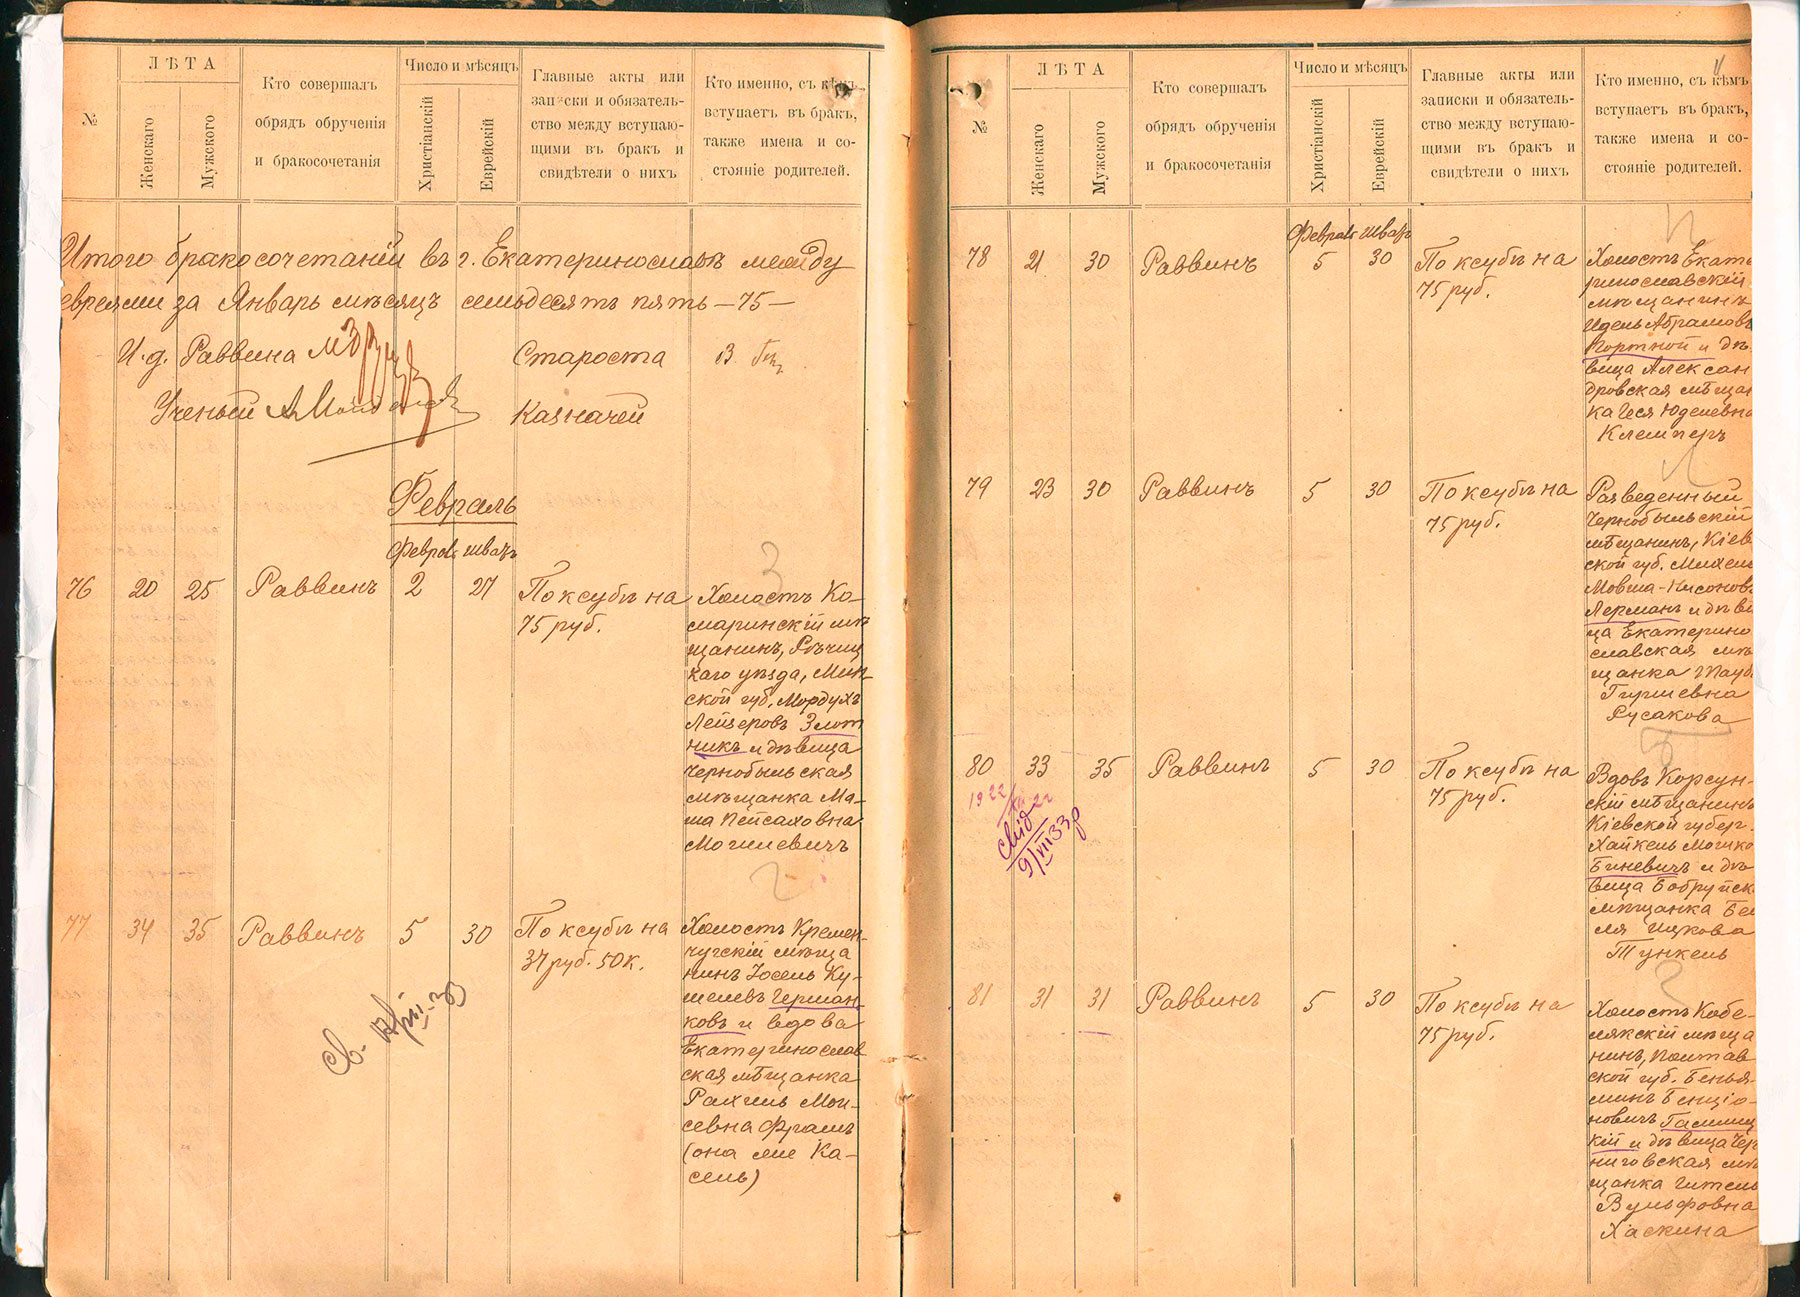 №
ЛѢТА
Женскаго
Мужского
Кто совершалъ
обрядъ обрученія
и бракосочетанія
Число и мѣсяцъ
Христіанскій
Еврейскій
Главные акты или
записки и обязатель-
ство между вступаю-
щими въ бракъ и
свидѣтели о нихъ
Кто именно, съ кѣмъ
вступаетъ въ бракъ,
также имена и со-
стояніе родителей.
Итого бракосочетаній въ г. Екатеринославѣ между
евреями за Январь мѣсяцъ семьдесятъ пять —75—
И. д. Раввина
Староста
Ученый
Казначей
Февраль
Феврал Шватъ
76 20 25 Раввинъ 2 27
По ксубѣ на
75 руб.
Холостъ Ко-
маринскій мѣ
щанинъ, Рѣчиц
каго уѣзда, Мин-
ской губ. Мордухъ
Лейзеровъ Злот
никъ и дѣвица
Чернобыльская
мѣщанка Ма-
ша Пейсаховна
Могилевичъ
77 34 35 Раввинъ 5 30
По ксубѣ на
37 руб. 50 к.
Холостъ Кремен-
чугскій мѣща
нинъ Іосель Ку-
шелевъ Герман-
ковъ и вдова
Екатеринослав
ская мѣщанка
Рахиль Мои-
севна
(она же Ка-
сель)
№
ЛѢТА
Женскаго
Мужского
Кто совершалъ
обрядъ обрученія
и бракосочетанія
Число и мѣсяцъ
Христіанскій
Еврейскій
Главные акты или
записки и обязатель-
ство между вступаю-
щими въ бракъ и
свидѣтели о нихъ
Кто именно, съ кѣмъ
вступаетъ въ бракъ,
также имена и со-
стояніе родителей.
Феврал Шватъ
78 21 30 Раввинъ 5 30
По ксубѣ на
75 руб.
Холостъ Екате
ринославскій
мѣщанинъ
Идель Абрамовъ
Портной и дѣ-
вица Алексан
дровская мѣщан
ка Геся Юделевна
Клемперъ
79 23 30 Раввинъ 5 30
По ксубѣ на
75 руб.
Разведенный
Чернобыльскій
мѣщанинъ, Кіев
ской губ. Михель
Мовша-Нисоновъ
Лерманъ и дѣви
ца Екатерино
славская мѣ
щанка
Гиршевна
Русакова
80 33 35 Раввинъ 5 30
По ксубѣ на
75 руб.
Вдовъ Корсун-
скій мѣщанинъ
Кіевской губер.
Хайкель Мошко
Биневичъ и дѣ
вица Бобруйск
мѣщанка Бей
ля Ицкова
Тункель
1922
81 31 31 Раввинъ 5 30
По ксубѣ на
75 руб.
Холостъ Кобе-
лякскій мѣща
нинъ, Полтав
ской губ. Бенья-
минъ Бенціо-
новичъ Галиц
кій и дѣвица Чер
ниговская мѣ
щанка Гитель
Вульфовна
Хаскина